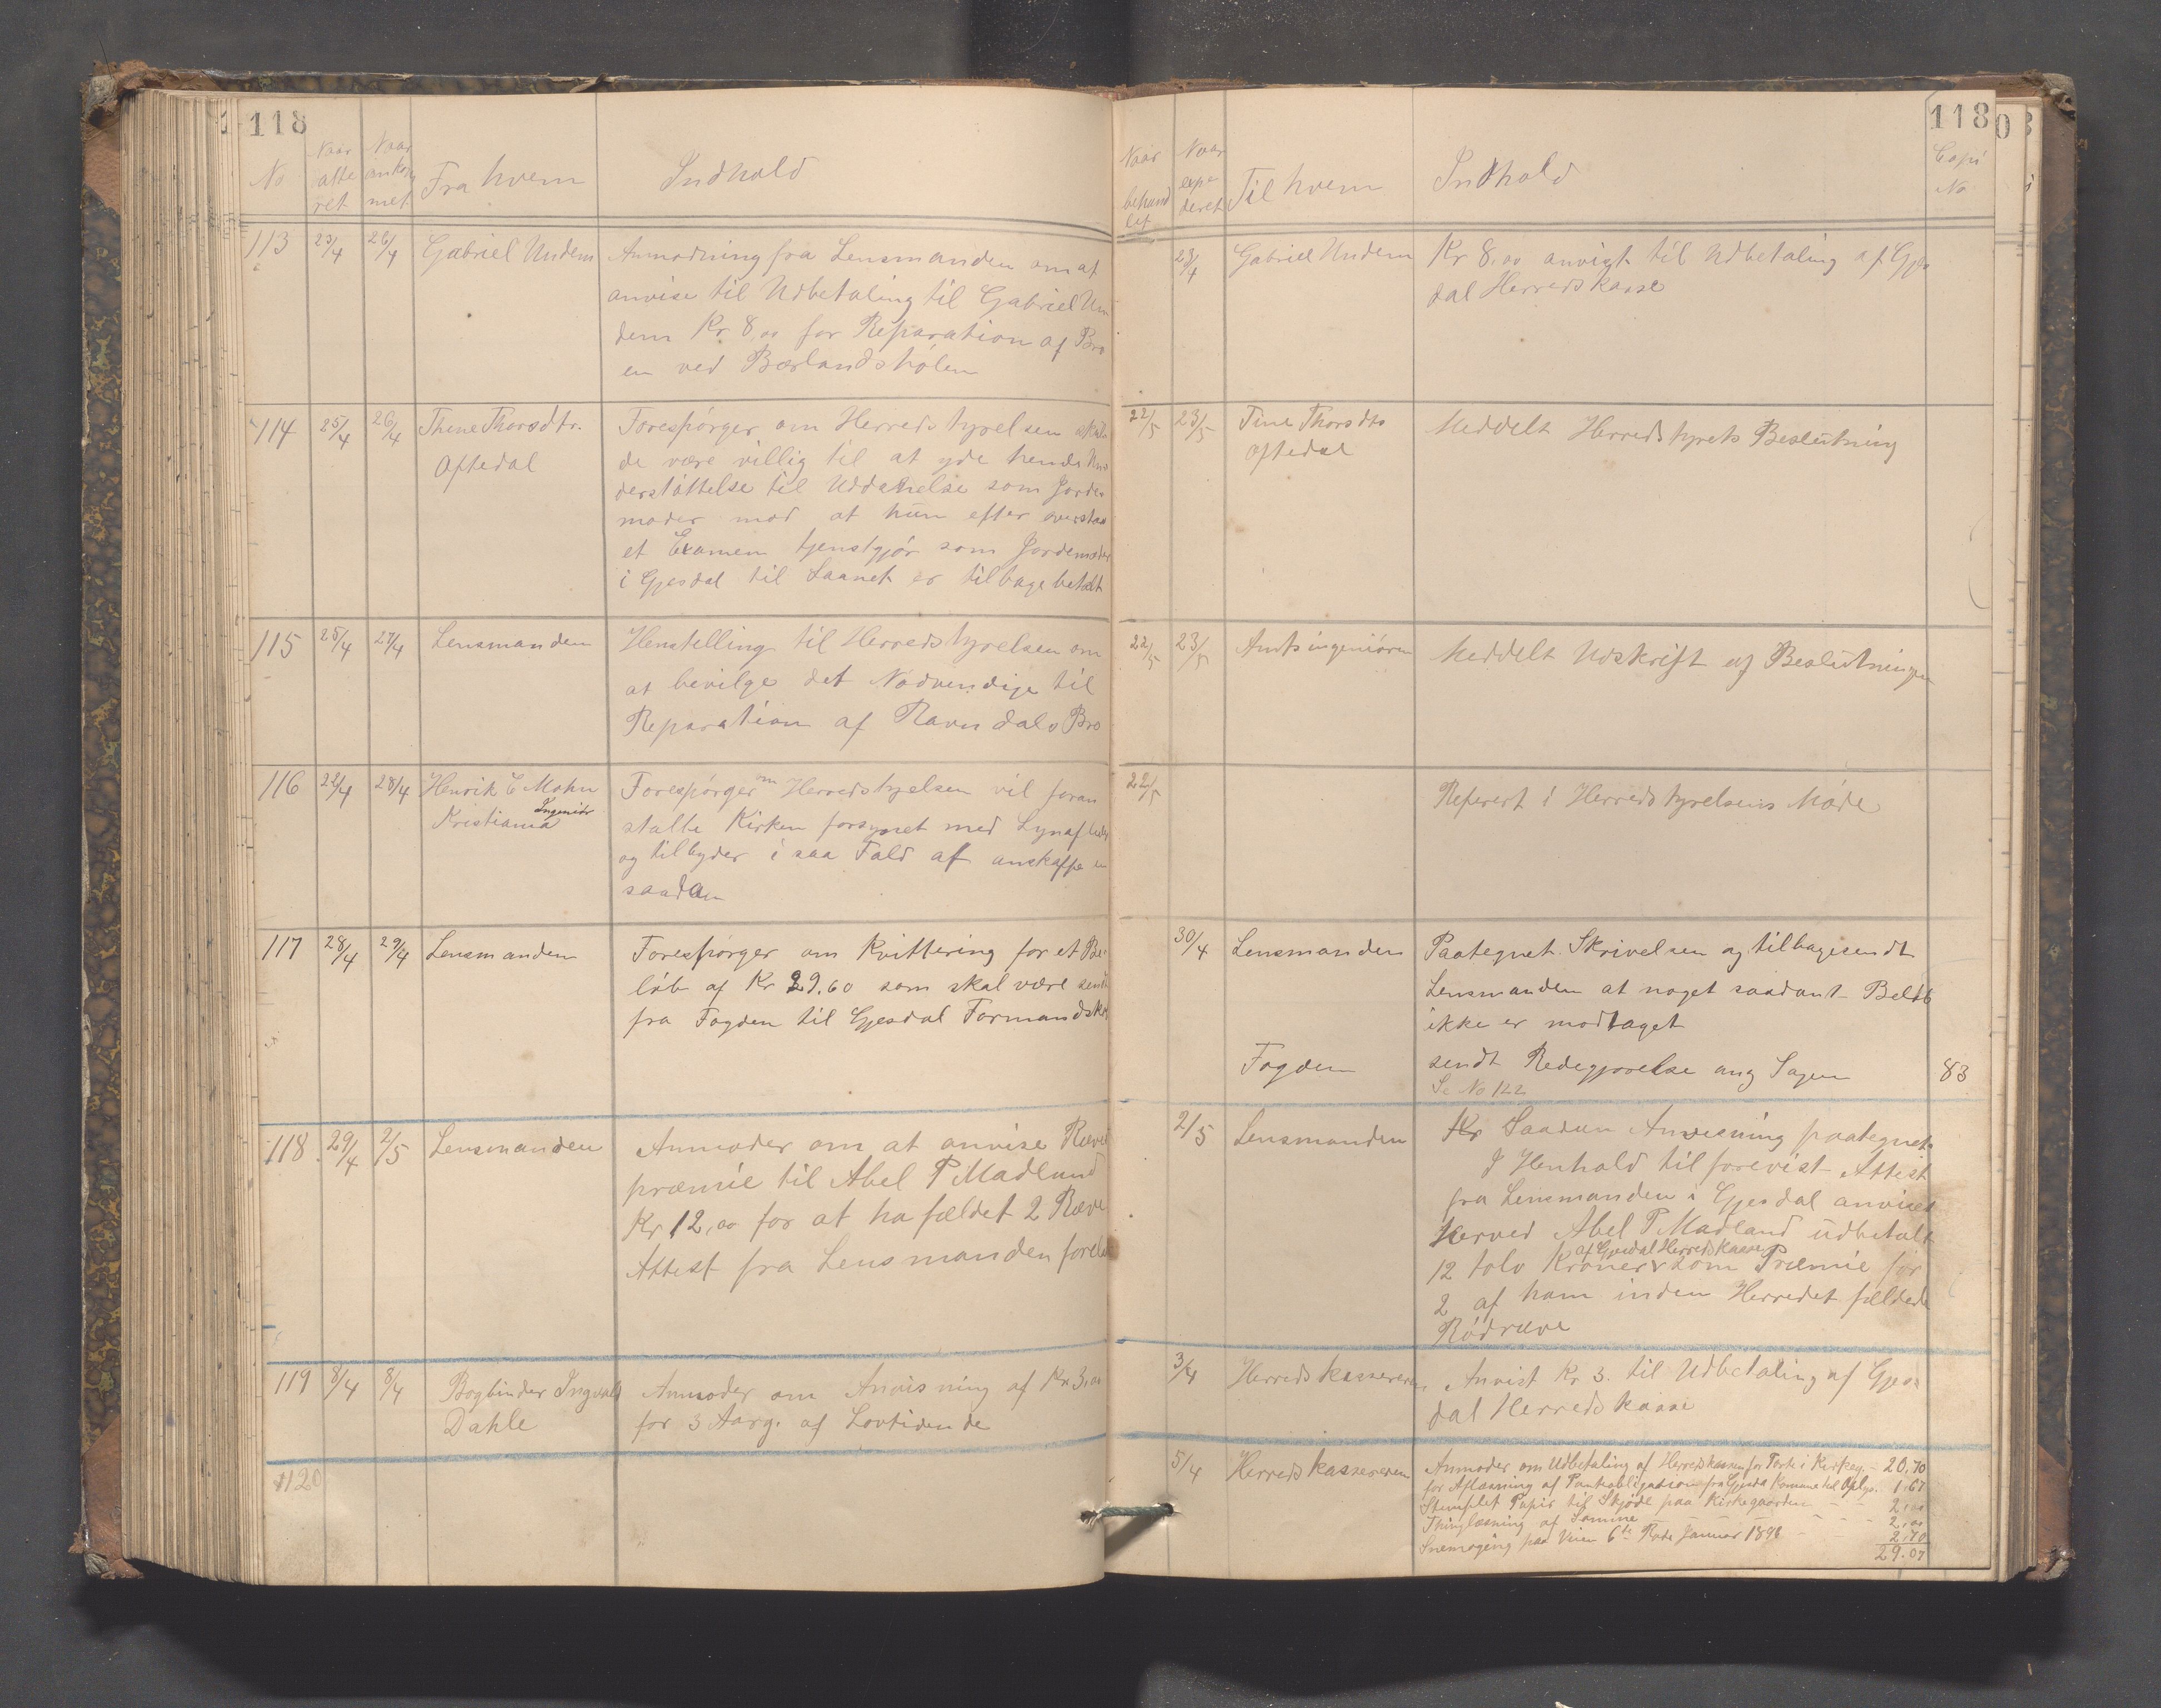 118
No
Naar atte ret
Naar ankom met
Fra hvem
Indhold
113 25/4 26/4 Gabriel Undem
Anmodning fra Lensmanden om at
anvise til Udbetaling til Gabriel Un
dem Kr 8,00 for Reparation af Bro
en ved Bærlandshølen
114 25/4 26/4 Thine Thorsdtr.
Oftedal
Forespørger om Herredstyrelsen skul
de være villig til at yde hende Un
derstøttelse til Uddanelse som Jorde
moder mod at hun efter overstaa
et Examen tjenstgjør som Jordemoder
i Gjesdal til Laanet er tilbagebetalt
115 25/4 27/4 Lensmanden
Henstilling til Herredstyrelsen om
at bevilge det Nødvendige til
Reparation af Ravndals Bro
116 22/4 28/4 Henrik C Mohn
Ingeniør
Kristiania
Forespørger om Herredstyrelsen vil foran
stalte Kirken forsynet med Lynafleder
og tilbyder i saa Fald at anskaffe en
saadan
117 28/4 29/4 Lensmanden
Forespørger om Kvittering for et Be
løb af Kr 29.60 som skal være sendt
fra Fogden til Gjesdal Formandsk
118 29/4 2/5 Lensmanden
Anmoder om at anvise Ræve
præmie til Abel P Madland
Kr 12,00 for at ha fældet 2 Ræve
Attest fra Lensmanden forela
119 8/4 8/4 Bogbinder Ingvald
Dahle
Anmoder om Anvisning af Kr 3,00
for 3 Aarg. af Lovtidende
120
118
Naar behand let
Naar expe deret
Til hvem
Indhold
Copi No
28/4 Gabriel Undem
Kr 8,00 anvist til Udbetaling af Gjes
dal Herredskasse
22/5 23/5 Tine Thorsdtr
Oftedal
Meddelt Herredstyrets Beslutning
22/5 23/5 Amtsingeniøren
Meddelt Udskrift af Beslutningen
22/5
Referert i Herredstyrelsens Møde
30/4 Lensmanden
Paategnet Skrivelsen og tilbagesendt
Lensmanden at noget saadant Beløb
ikke er modtaget
Fogden
sendt Redegjørelse ang Sagen 83
Se No 122
2/5 Lensmanden
Kr Saadan Anvisning paategnet
I Henhold til forevist Attest
fra Lensmanden i Gjesdal anvises
Herved Abel P Madland udbetalt
af Gjesdal Herredskasse
12 tolv Kroner som Præmie for
2 af ham inden Herredet fældede
Rødræve
3/4 Herredskassereren
Anvist Kr 3. til Udbetaling af Gjes
dal Herredskasse
5/4 Herredskassereren
Anmoder om Udbetaling af Herredskassen for Porto i Kirkey. 20,70
for Aflæsning af Panteobligation fra Gjesdal Komune til Oplys. 1,67
Stemplet Papir til Skjøde paa Kirkegaarden 2,00
Thinglæsning af Samme 2,00
Snemogning paa Veien 6te Rode Januar 1898 2,70
29.07